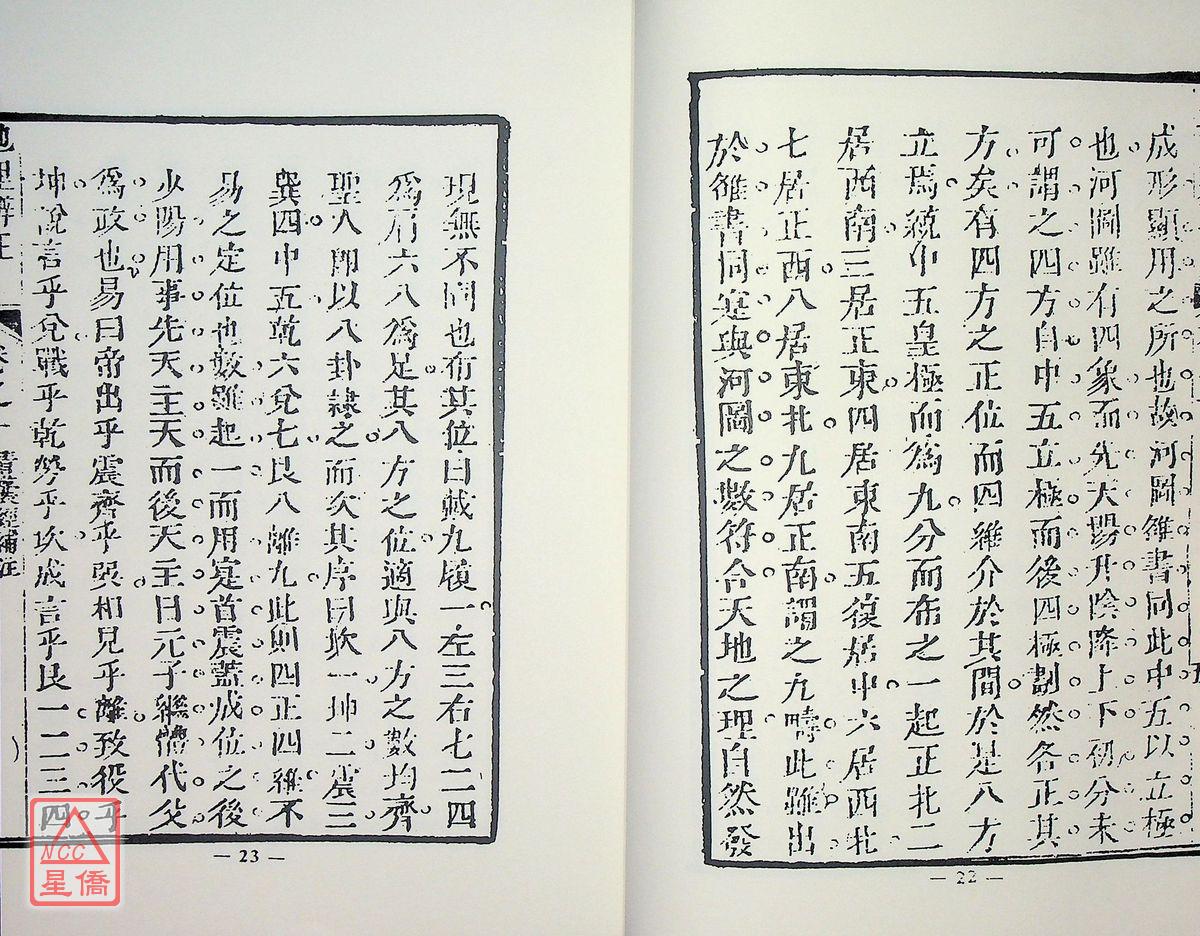 成形顯用之所也故河圖雒書同此中五以立極
也河圖雖有四象而先天陽升陰降上下初分未
可謂之四方自中五立極而後四極劃然各正其
方矣有四方之正位而四維介於其間於是八方
立焉統中五皇極而為九分而布之一起正北二
居西南三居正東四居東南五復居中六居西北
七居正西八居東北九居正南謂之九疇此雖出
於雒書同寔與河圖之數符合天地之理自然發
— 22 —
現無不同也布其位曰戴九履一左三右七二四
為肩六八為足其八方之位適與八方之數均齊
聖人即以八卦隸之而次其序曰坎一坤二震三
巽四中五乾六兌七艮八離九此則四正四維不
易之定位也數雖起一而用寔首震蓋成位之後
少陽用事先天主天而後天主日元子繼體代父
為政也易曰帝出乎震齊乎巽相見乎離致役乎
坤說言乎兌戰乎乾勞乎坎成言乎艮一二三四
地理辨正 卷之一 青囊經補註
— 23 —
NCC
星僑